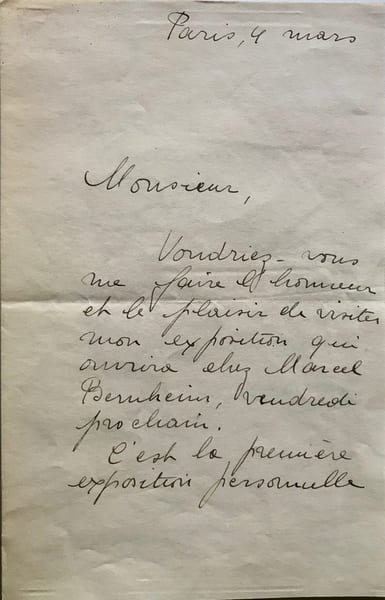 Paris, 4 mars
Monsieur,
Voudriez-vous
me faire l'honneur
et le plaisir de visiter
mon exposition qui
ouvrira chez Marcel
Bernheim, vendredi
prochain.
C'est la première
exposition personnelle